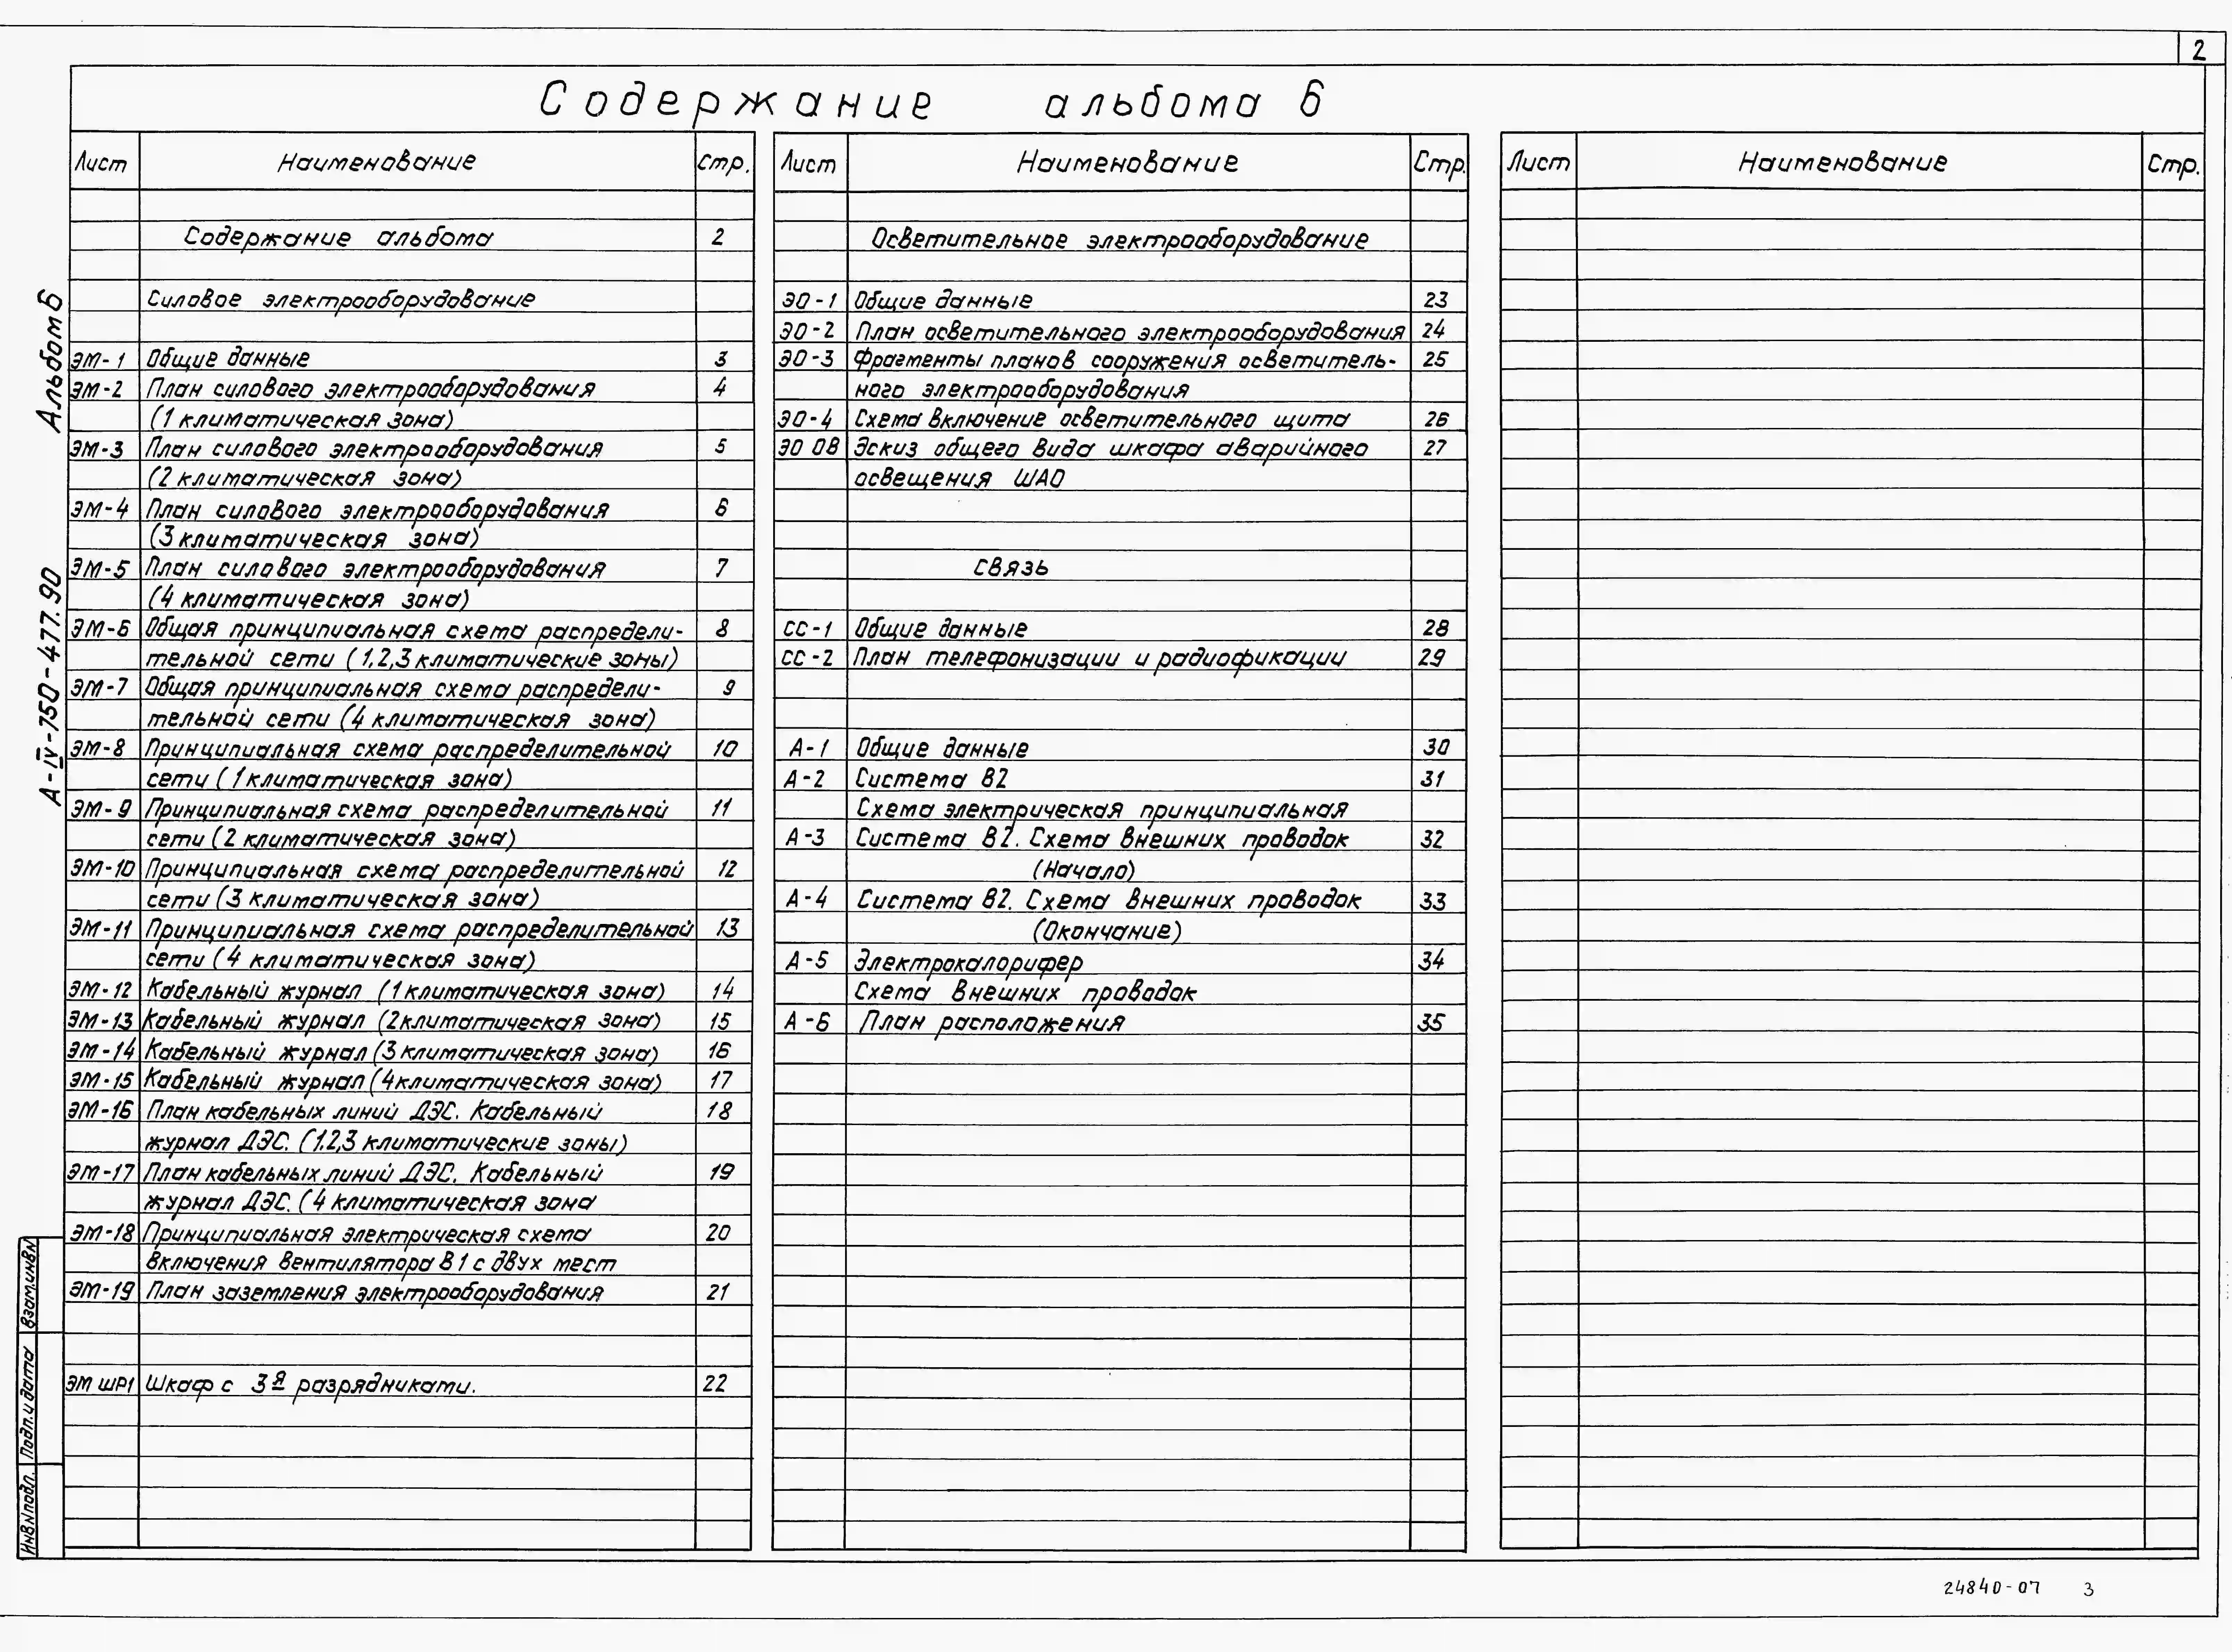 2
Содержание альбома 6
Лист Наименование Стр.
Содержание альбома 2
Силовое электрооборудование
ЭМ-1 Общие данные 3
ЭМ-2 План силового электрооборудования 4
(1 климатическая зона)
ЭМ-3 План силового электрооборудования 5
(2 климатическая зона)
ЭМ-4 План силового электрооборудования 6
(3 климатическая зона)
ЭМ-5 План силового электрооборудования 7
(4 климатическая зона)
ЭМ-6 Общая принципиальная схема распредели- 8
тельной сети (1,2,3 климатические зоны)
ЭМ-7 Общая принципиальная схема распредели- 9
тельной сети (4 климатическая зона)
ЭМ-8 Принципиальная схема распределительной 10
сети (1 климатическая зона)
ЭМ-9 Принципиальная схема распределительной 11
сети (2 климатическая зона)
ЭМ-10 Принципиальная схема распределительной 12
сети (3 климатическая зона)
ЭМ-11 Принципиальная схема распределительной 13
сети (4 климатическая зона)
ЭМ-12 Кабельный журнал (1 климатическая зона) 14
ЭМ-13 Кабельный журнал (2 климатическая зона) 15
ЭМ-14 Кабельный журнал (3 климатическая зона) 16
ЭМ-15 Кабельный журнал (4 климатическая зона) 17
ЭМ-16 План кабельных линий ДЭС. Кабельный 18
журнал ДЭС. (1.2,3 климатические зоны)
ЭМ-17 План кабельных линий ДЭС. Кабельный 19
журнал ДЭС. (4 климатическая зона
ЭМ-18 Принципиальная электрическая схема 20
включения вентилятора В1 с двух мест
ЭМ-19 План заземления электрооборудования 21
ЭМ ШР1 Шкаф с 3я разрядниками. 22
Лист Наименование Стр.
Осветительное электрооборудование
ЭО-1 Общие данные 23
ЭО-2 План осветительного электрооборудования 24
ЭО-3 Фрагменты планов сооружения осветитель- 25
ного электрооборудования
ЭО-4 Схема включение осветительного щита 26
ЭО ОВ Эскиз общего вида шкафа аварийного 27
освещения ШАО
связь
СС-1 Общие данные 28
СС-2 План телефонизации и радиофикации 29
А-1 Общие данные 30
А-2 Система В2 31
Схема электрическая принципиальная
А-3 Система В2. Схема внешних проводок 32
(Начало)
А-4 Система В2. Схема внешних проводок 33
(Окончание)
А-5 Электрокалорифер 34
Схема внешних проводок
А-6 План расположения 35
Лист Наименование Стр.
Альбом 6
А-IV-750-477.90
Взам.инв№
Подп.и дата
Инв№подл.
24840-07 3